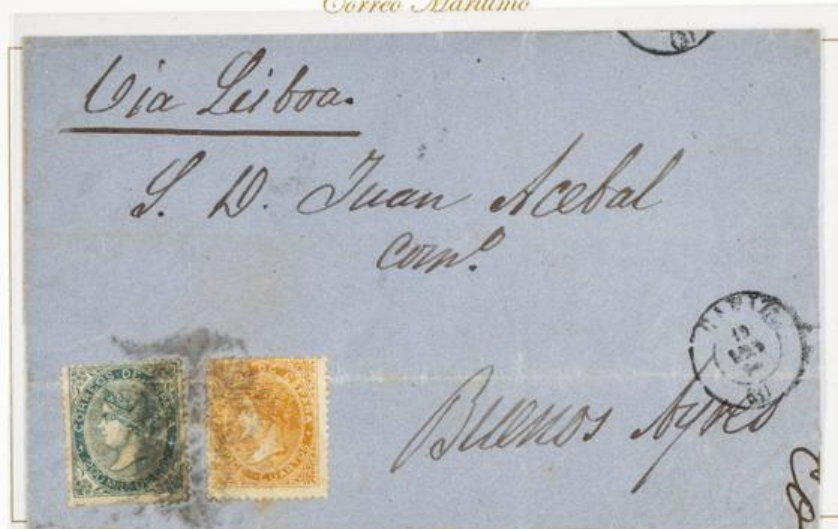 Correo Marítimo
Via Lisboa.
S. D. Juan Acebal
Com.º
Buenos Ayres
CORREOS DE